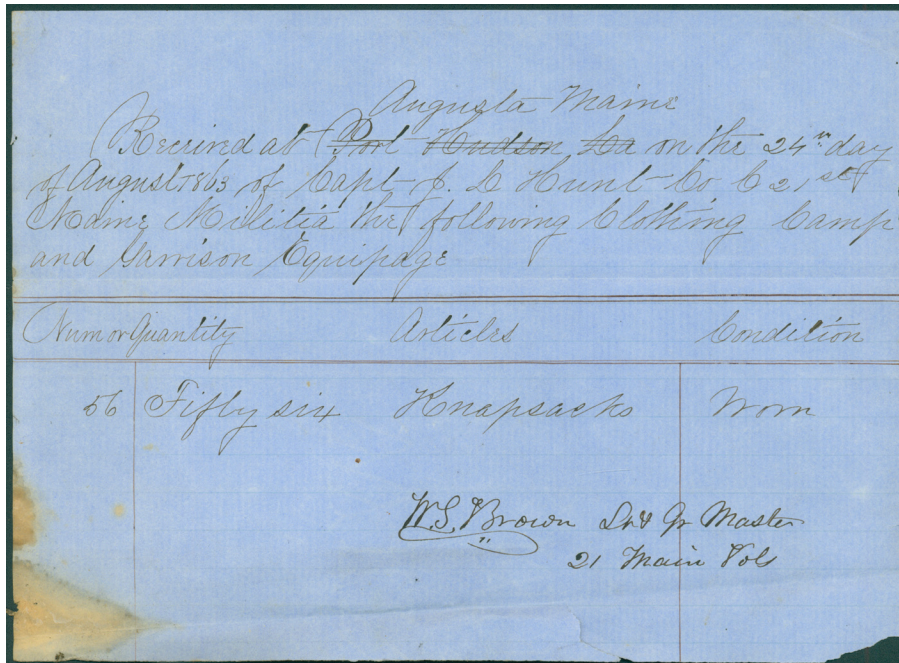 Augusta Maine
Received at Port Hudson La on the 24th day
of August 1863 of Capt J. L Hunt Co C 21st
Maine Militia the following Clothing Camp
and Garrison Equipage
Num or Quantity Articles Condition
56 Fifty six Knapsacks Worn
W.S. Brown Qr Master
21 Main Vols